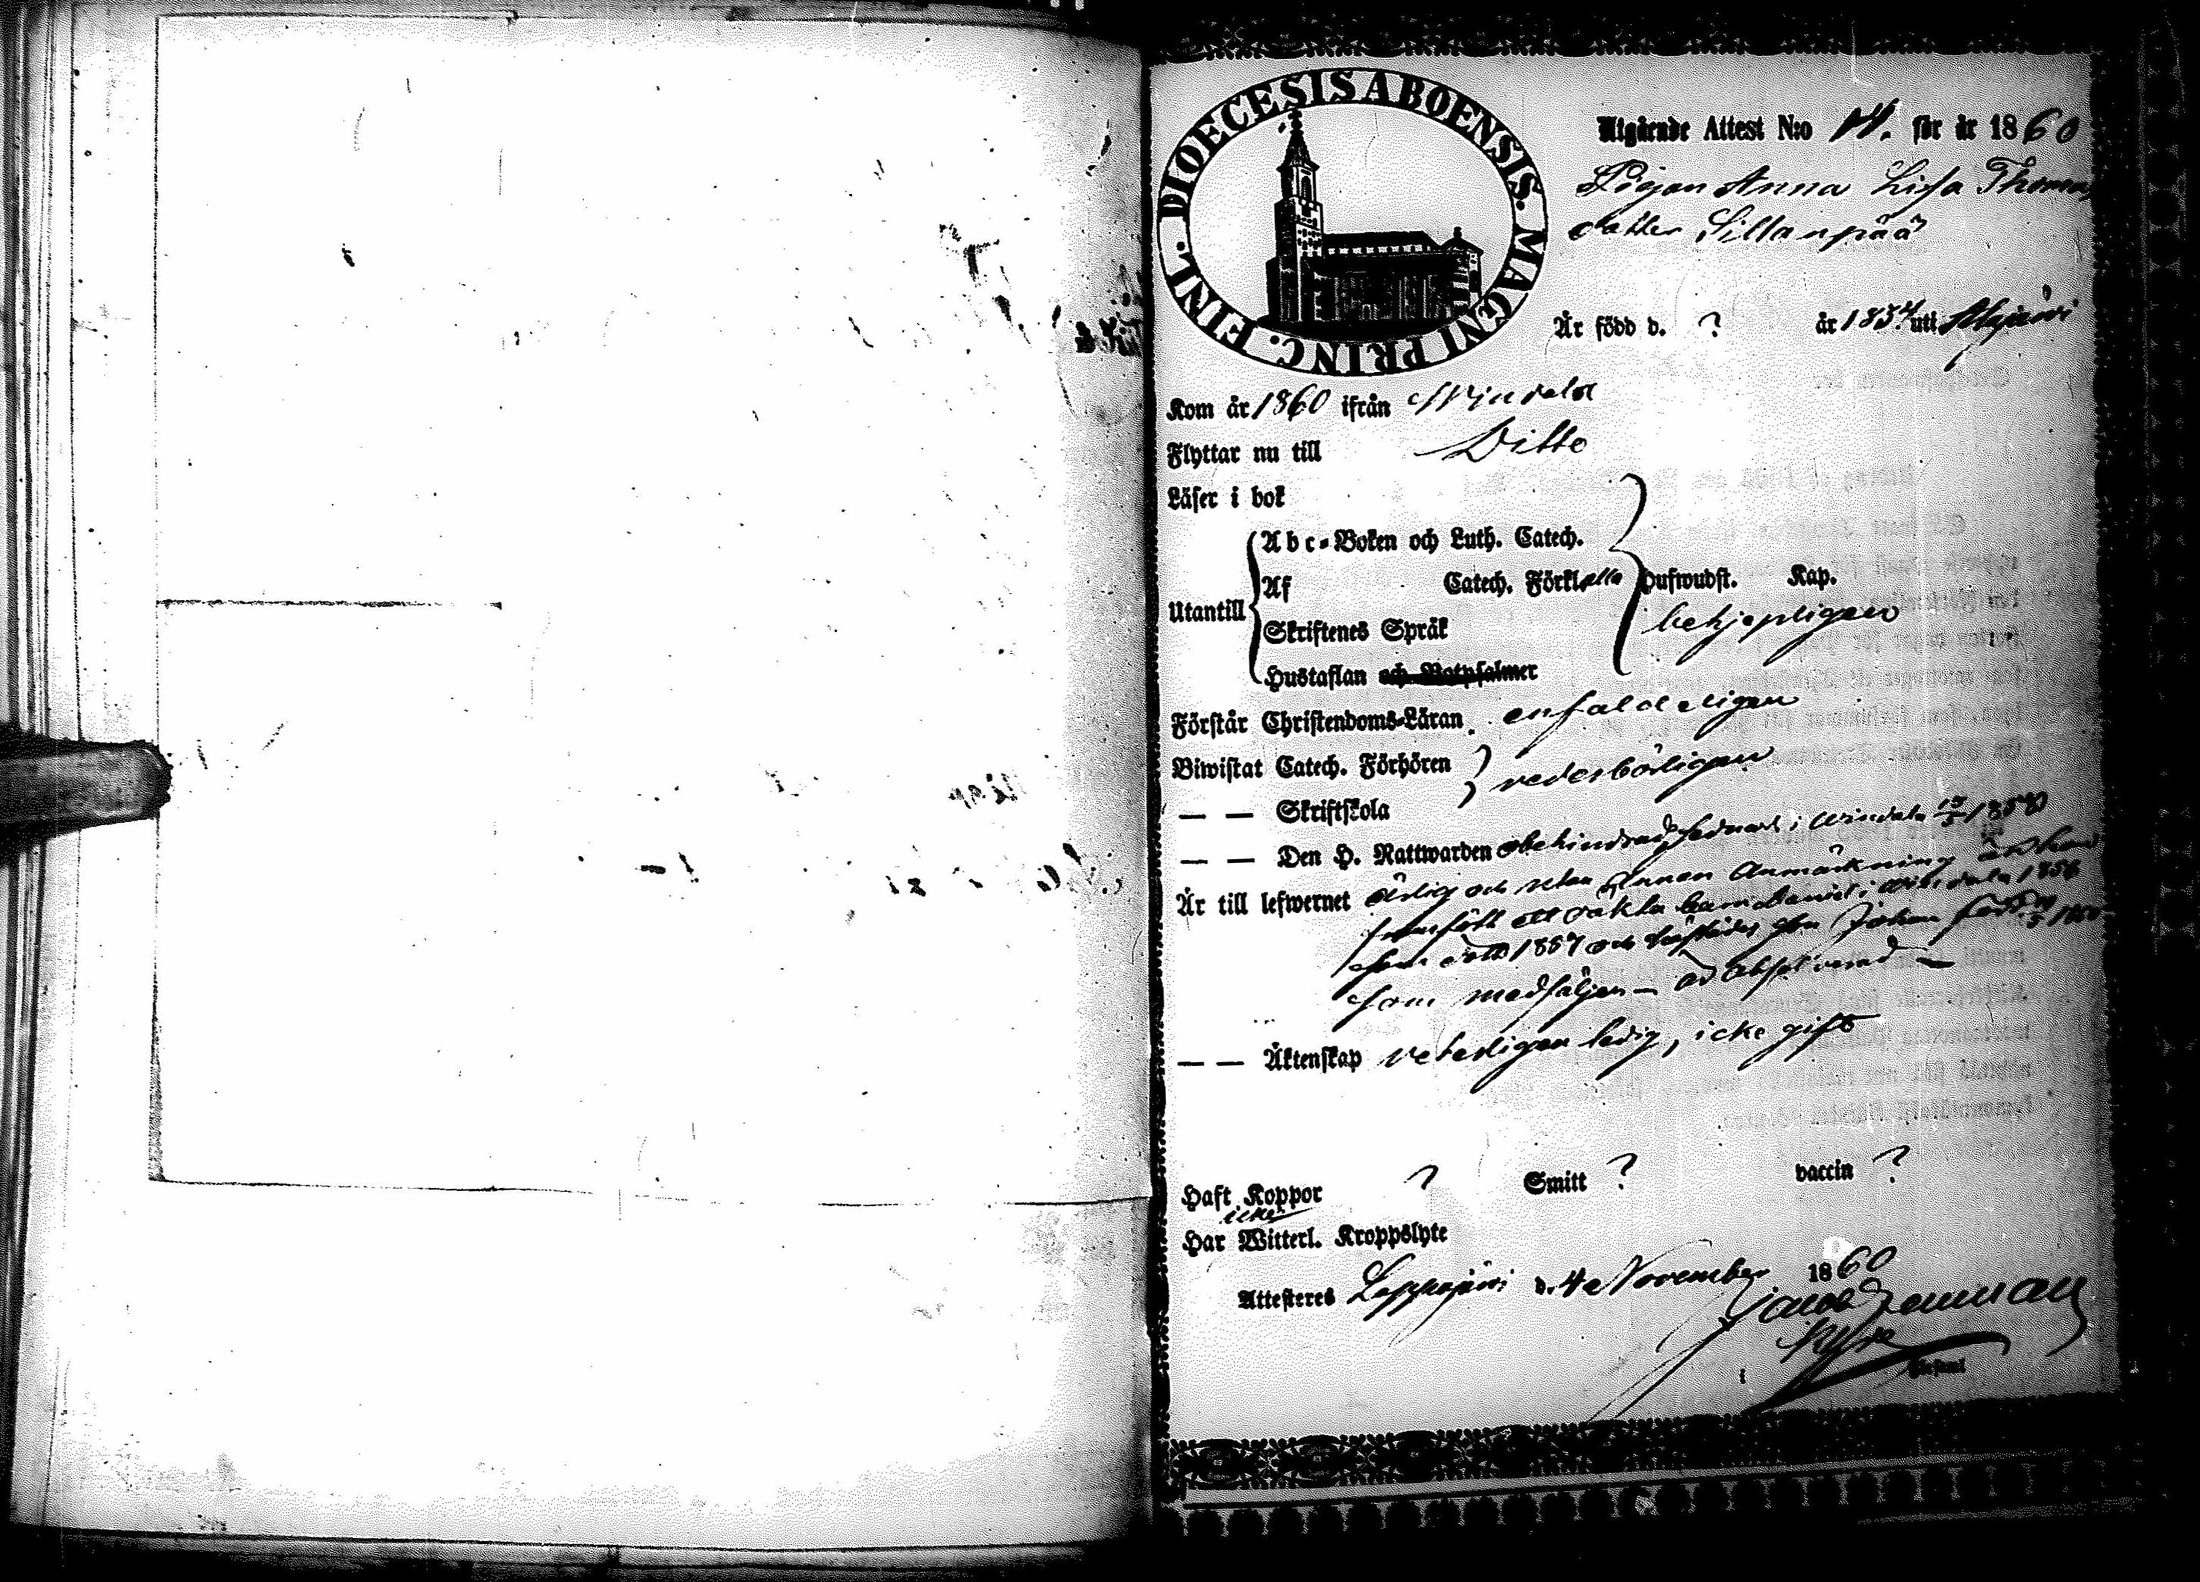 DIOECESIS ABOENSIS. MAGNI PRINC. FINL.
Utgårnde Attest N:o 14. för år 1860
Pigan Anna Lisa Thomas
dotter Sillanpää
Är född d. ? år 1834 uti
Kom år 1860 ifrån Windala
Flyttar nu till Ditto
Läser i bok
Utantill
Abc-Boken och Luth. Catech.
Af Catech. Förkl. alla Hufwudst. Kap.
Skriftenes Språk
Hustaflan och Botpsalmer
behjepligen
Förstår Christendoms-Läran. enfaldeligen
Biwistat Catech. Förhören vederbörligen
— — Skriftskola
— — Den H. Nattwarden obehindrad, sednast i Windala
Är till lefwernet ärlig och utan annan anmärkning än hon
framfödt ett oäkta barn i Windala 1856
som dödt 1857 och Johan född
som medföljer — absolverad —
— — Äktenskap veterligen ledig, icke gift
Haft Koppor ? Smitt ? vaccin ?
icke
Har Witterl. Kroppslyte
Attesteres Lappajärvi d. 4 November 1860